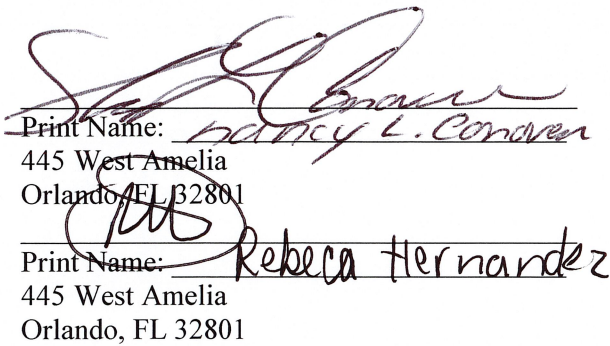 Print Name: Nancy L. Conover
445 West Amelia
Orlando, FL 32801
Print Name: Rebeca Hernandez
445 West Amelia
Orlando, FL 32801